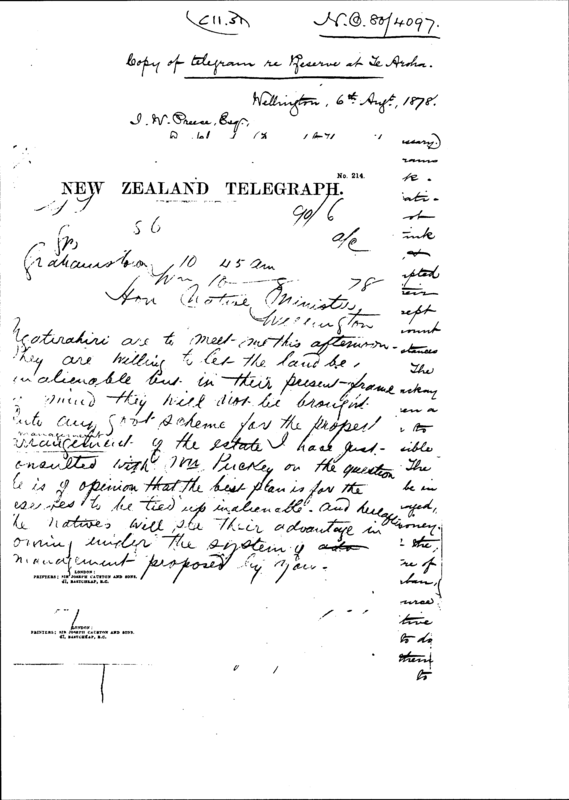 C11.31
N.O. 80/4097.
Copy of telegram re Reserve at Te Aroha.
Wellington, 6th Augt, 1878.
J. W. Preece, Esq.,
No. 214.
NEW ZEALAND TELEGRAPH.
56
90/6
a/c
Grahamstown 10 45 am
78
Hon Native Minister
Wellington
Ngatirahiri are to meet me this afternoon
They are willing to let the land be
inalienable but in their present frame
mind they will not be brought
into any govt scheme for the proper
management
arrangement of the estate I have just
onsulted with Mr Puckey on the question
e is of opinion that the best plan is for the
eserves to be tied up inalienable. and
he natives will see their advantage in
oming under the system of
management proposed by you.
LONDON:
PRINTERS; SIR JOSEPH CAUSTON AND SONS.
47, EASTCHEAP, E.C.
LONDON:
PRINTERS; SIR JOSEPH CAUSTON AND SONS.
47, EASTCHEAP, E.C.
essary)
rams
k.
ati-
ot
ink
epted
their
rept
ount
stances
The
en a
to
sible.
The
be in
oyed,
money.
the
re of
urse
tive
to do
them
to